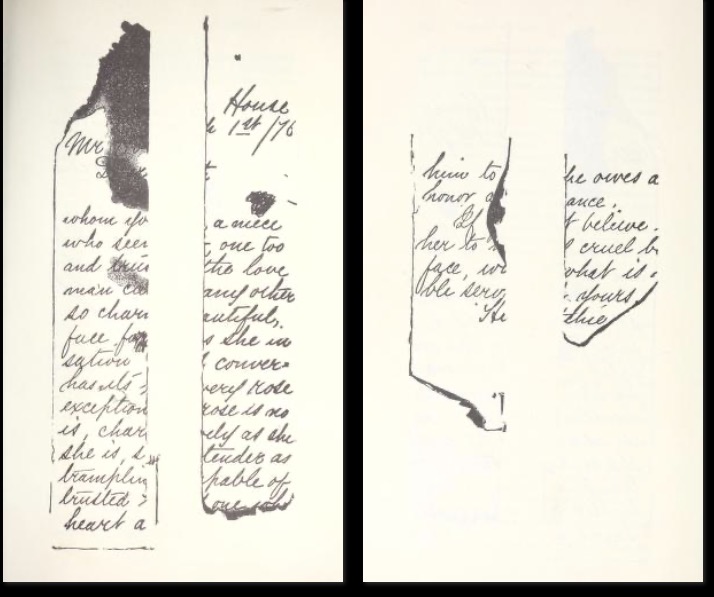 House
1st/76
Mr
whom yo a niece
who seem one too
and the love
man ca any other
so charm autiful,
face. for s she in
sation conver-
has its very rose
exception rose is no
is, char ely as she
she is, s tender as
tramplin pable of
trusted
heart a
him to he owes a
honor a ance.
If t believe.
her to cruel b
face, wi what is
ble serv yours
thie